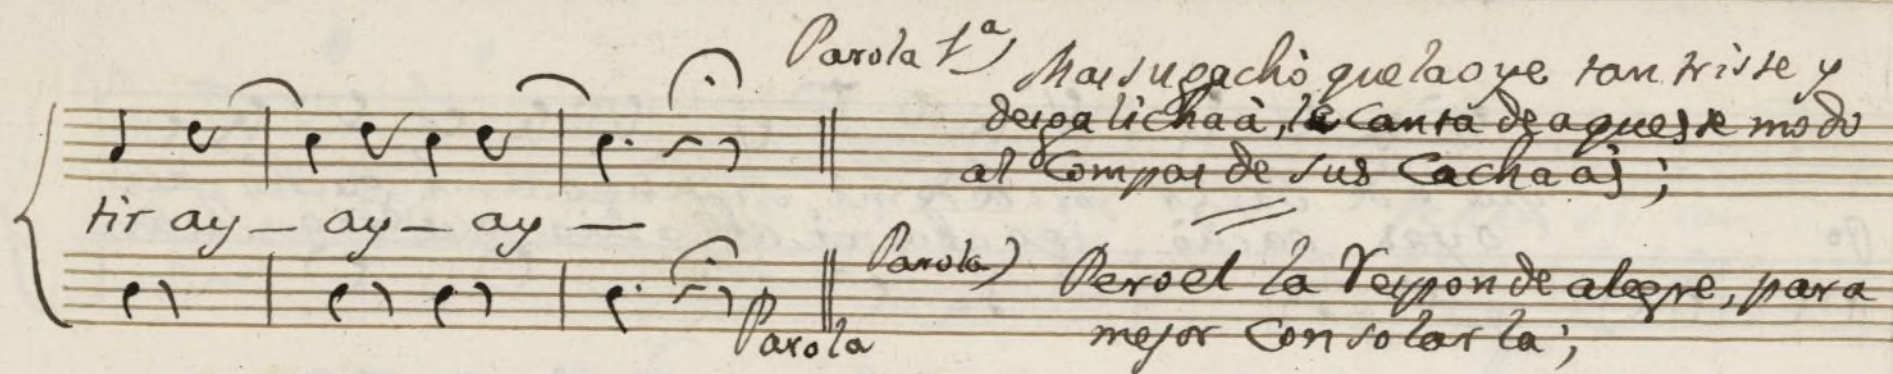 Parola 1ª) Mas su gachò que la oye tan triste y
desgalichaà, le Canta de aqueste modo
al Compas de sus Cachaas;
tir ay _ ay _ ay _
Parola) Pero el la Responde alegre, para
mejor Consolarla;
Parola